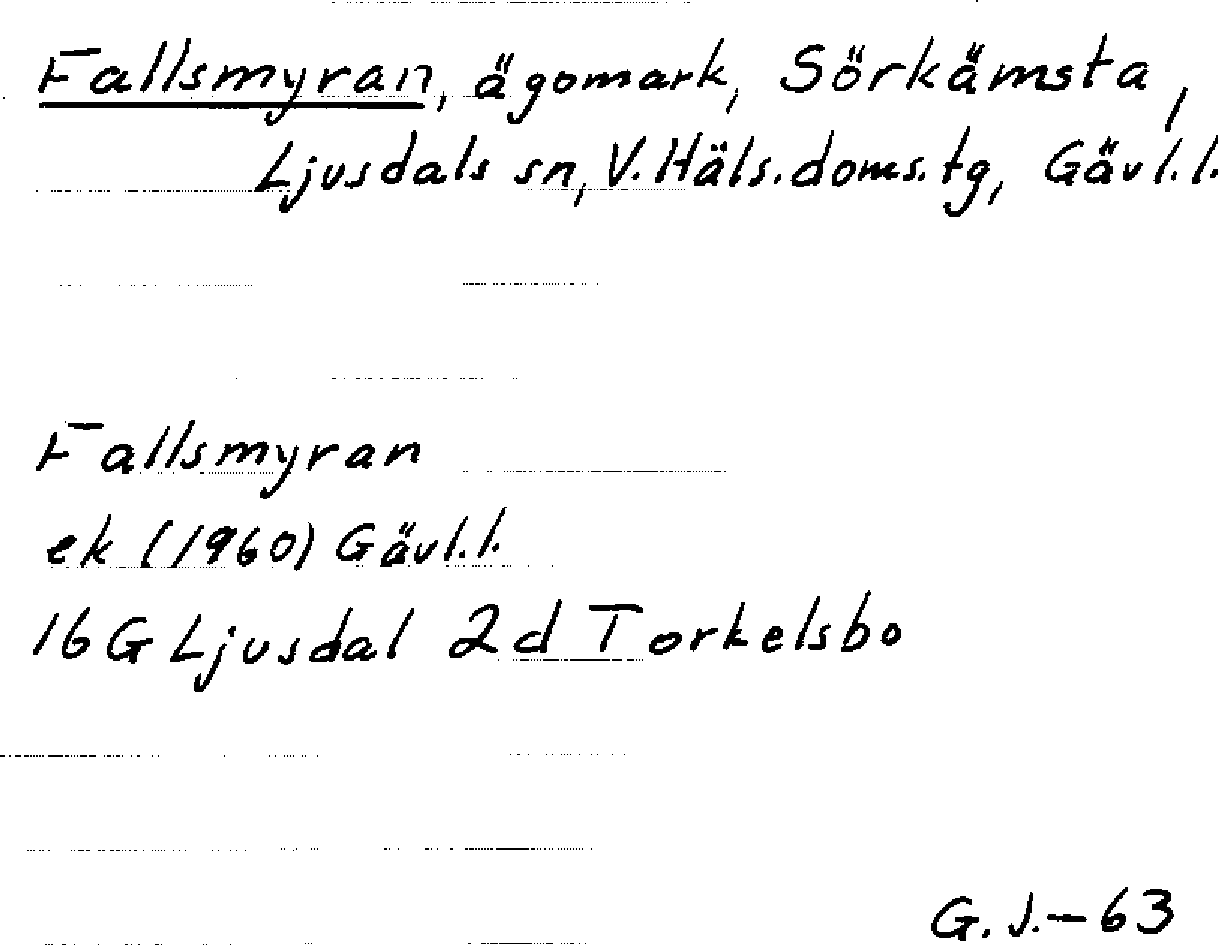 Fallsmyran, ägomark, Sörkämsta,
Ljusdals sn, V. Häls. doms. tg, Gävl. l.
Fallsmyran
ek (1960) Gävl. l.
16 G Ljusdal 2d Torkelsbo
G. J. – 63